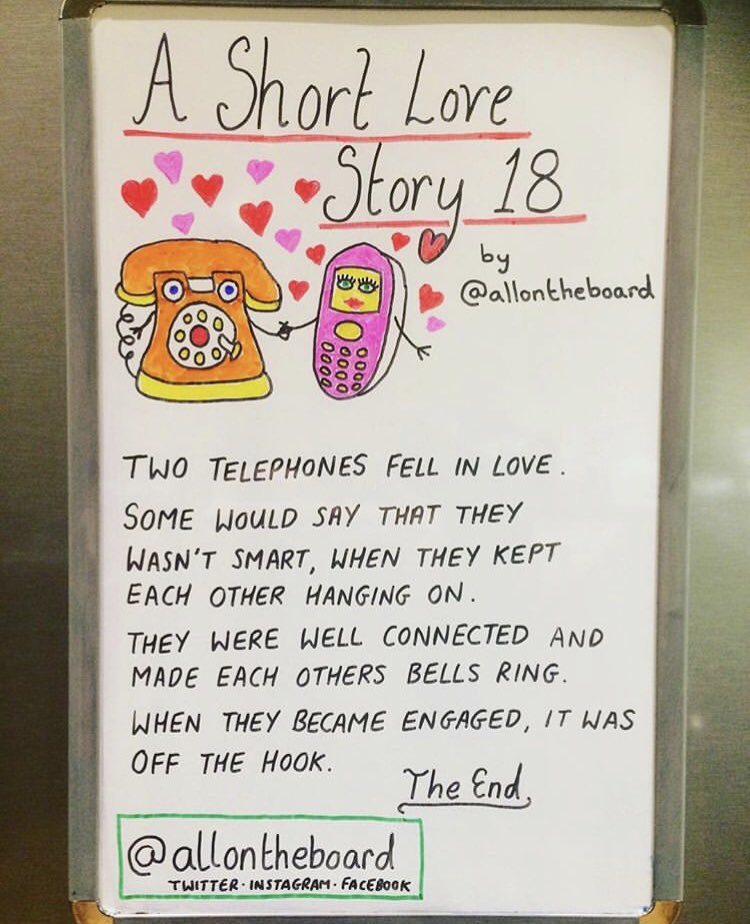 A Short Love
Story 18
by
@allontheboard
TWO TELEPHONES FELL IN LOVE.
SOME WOULD SAY THAT THEY
WASN'T SMART, WHEN THEY KEPT
EACH OTHER HANGING ON.
THEY WERE WELL CONNECTED AND
MADE EACH OTHERS BELLS RING.
WHEN THEY BECAME ENGAGED, IT WAS
OFF THE HOOK.
The End.
@allontheboard
TWITTER · INSTAGRAM · FACEBOOK